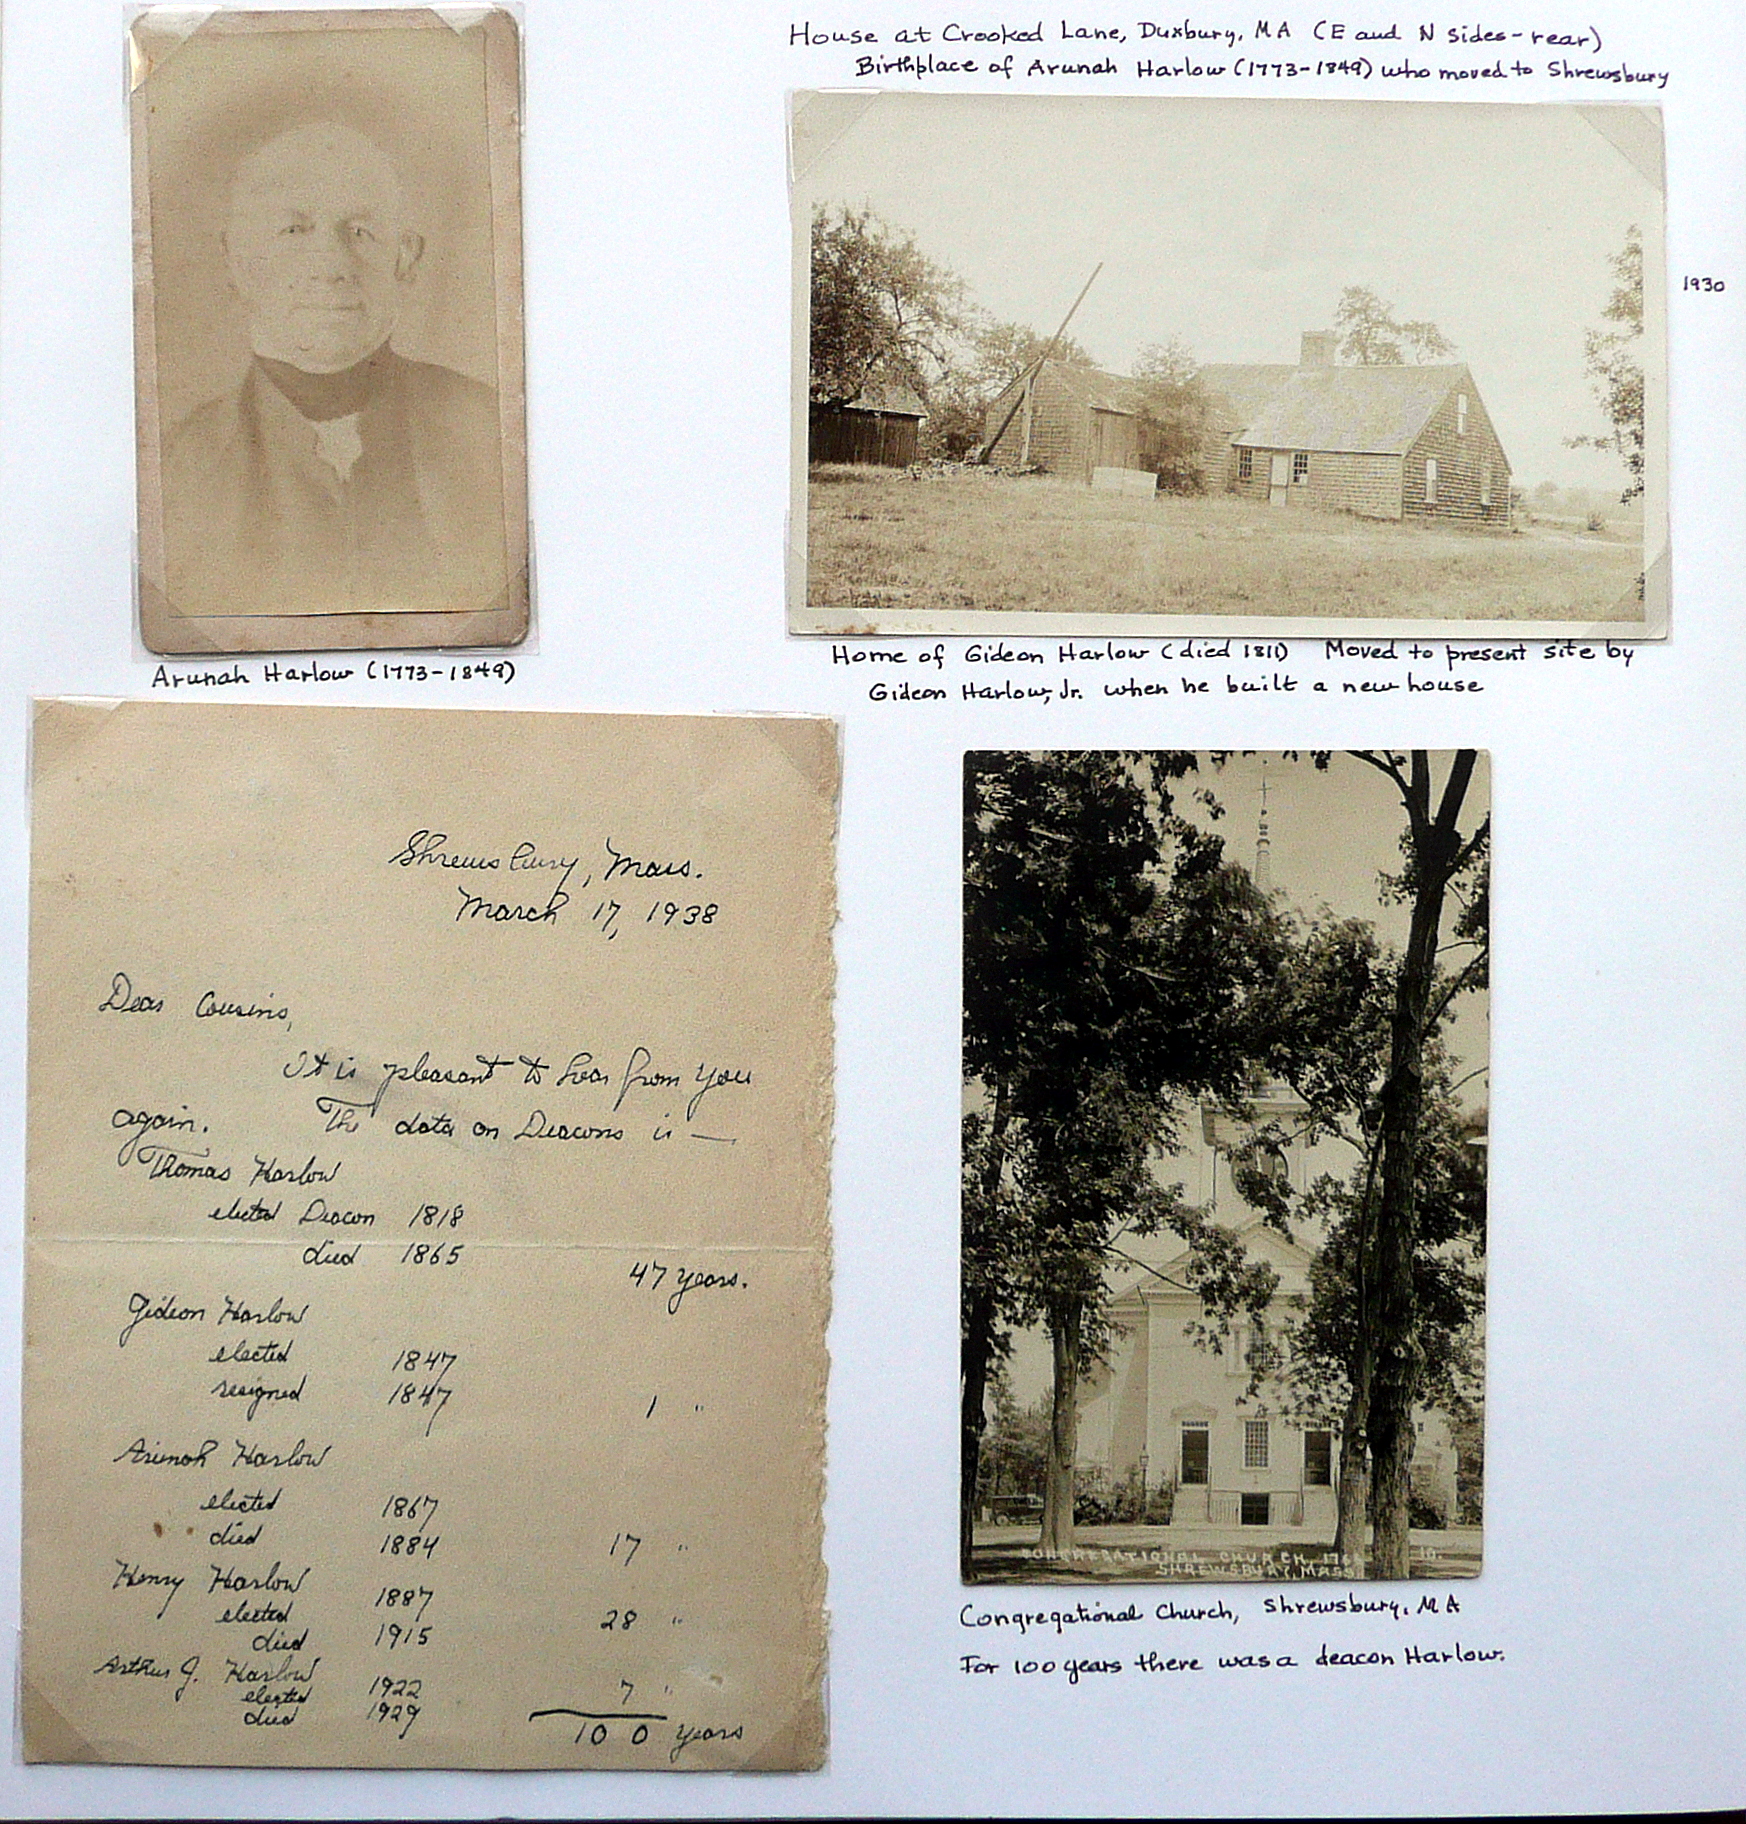 House at Crooked Lane, Duxbury, MA (E and N sides-rear)
Birthplace of Arunah Harlow (1773-1849) who moved to Shrewsbury
1930
Arunah Harlow (1773-1849)
Home of Gideon Harlow (died 1811) Moved to present site by
Gideon Harlow, Jr. when he built a new house
Shrewsbury, Mass.
March 17, 1938
Dear Cousins,
It is pleasant to hear from you
again. The data on Deacons is —
Thomas Harlow
elected Deacon 1818
died 1865
47 years.
Gideon Harlow
elected 1847
resigned 1847 1 "
Arunah Harlow
elected 1867
died 1884 17 "
Henry Harlow
elected 1887 28 "
died 1915
Arthur J. Harlow
elected 1922 7 "
died 1929
100 years
CONGREGATIONAL CHURCH, 
SHREWSBURY, MASS.
Congregational Church, Shrewsbury, MA
For 100 years there was a deacon Harlow.